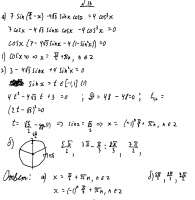 №13
а) 7 sin(π/2 - x) - 4√3 sinx cosx = 4 cos³x
7 cosx - 4√3 sinx cosx - 4 cos³x = 0
cosx (7 - 4√3 sinx - 4(1 - sin²x)) = 0
1) cosx = 0 => x = π/2 + πn, n ∈ Z
2) 3 - 4√3 sinx + 4 sin²x = 0
sinx = t, t ∈ [-1; 1]
4t² - 4√3 t + 3 = 0 ; D = 48 - 48 = 0 ;
(2t - √3)² = 0
t = √3/2 => sinx = √3/2 => x = (-1)ⁿ π/3 + πn, n ∈ Z
б)
Ответ: а) x = π/2 + πn, n ∈ Z
x = (-1)ⁿ π/3 + πn, n ∈ Z